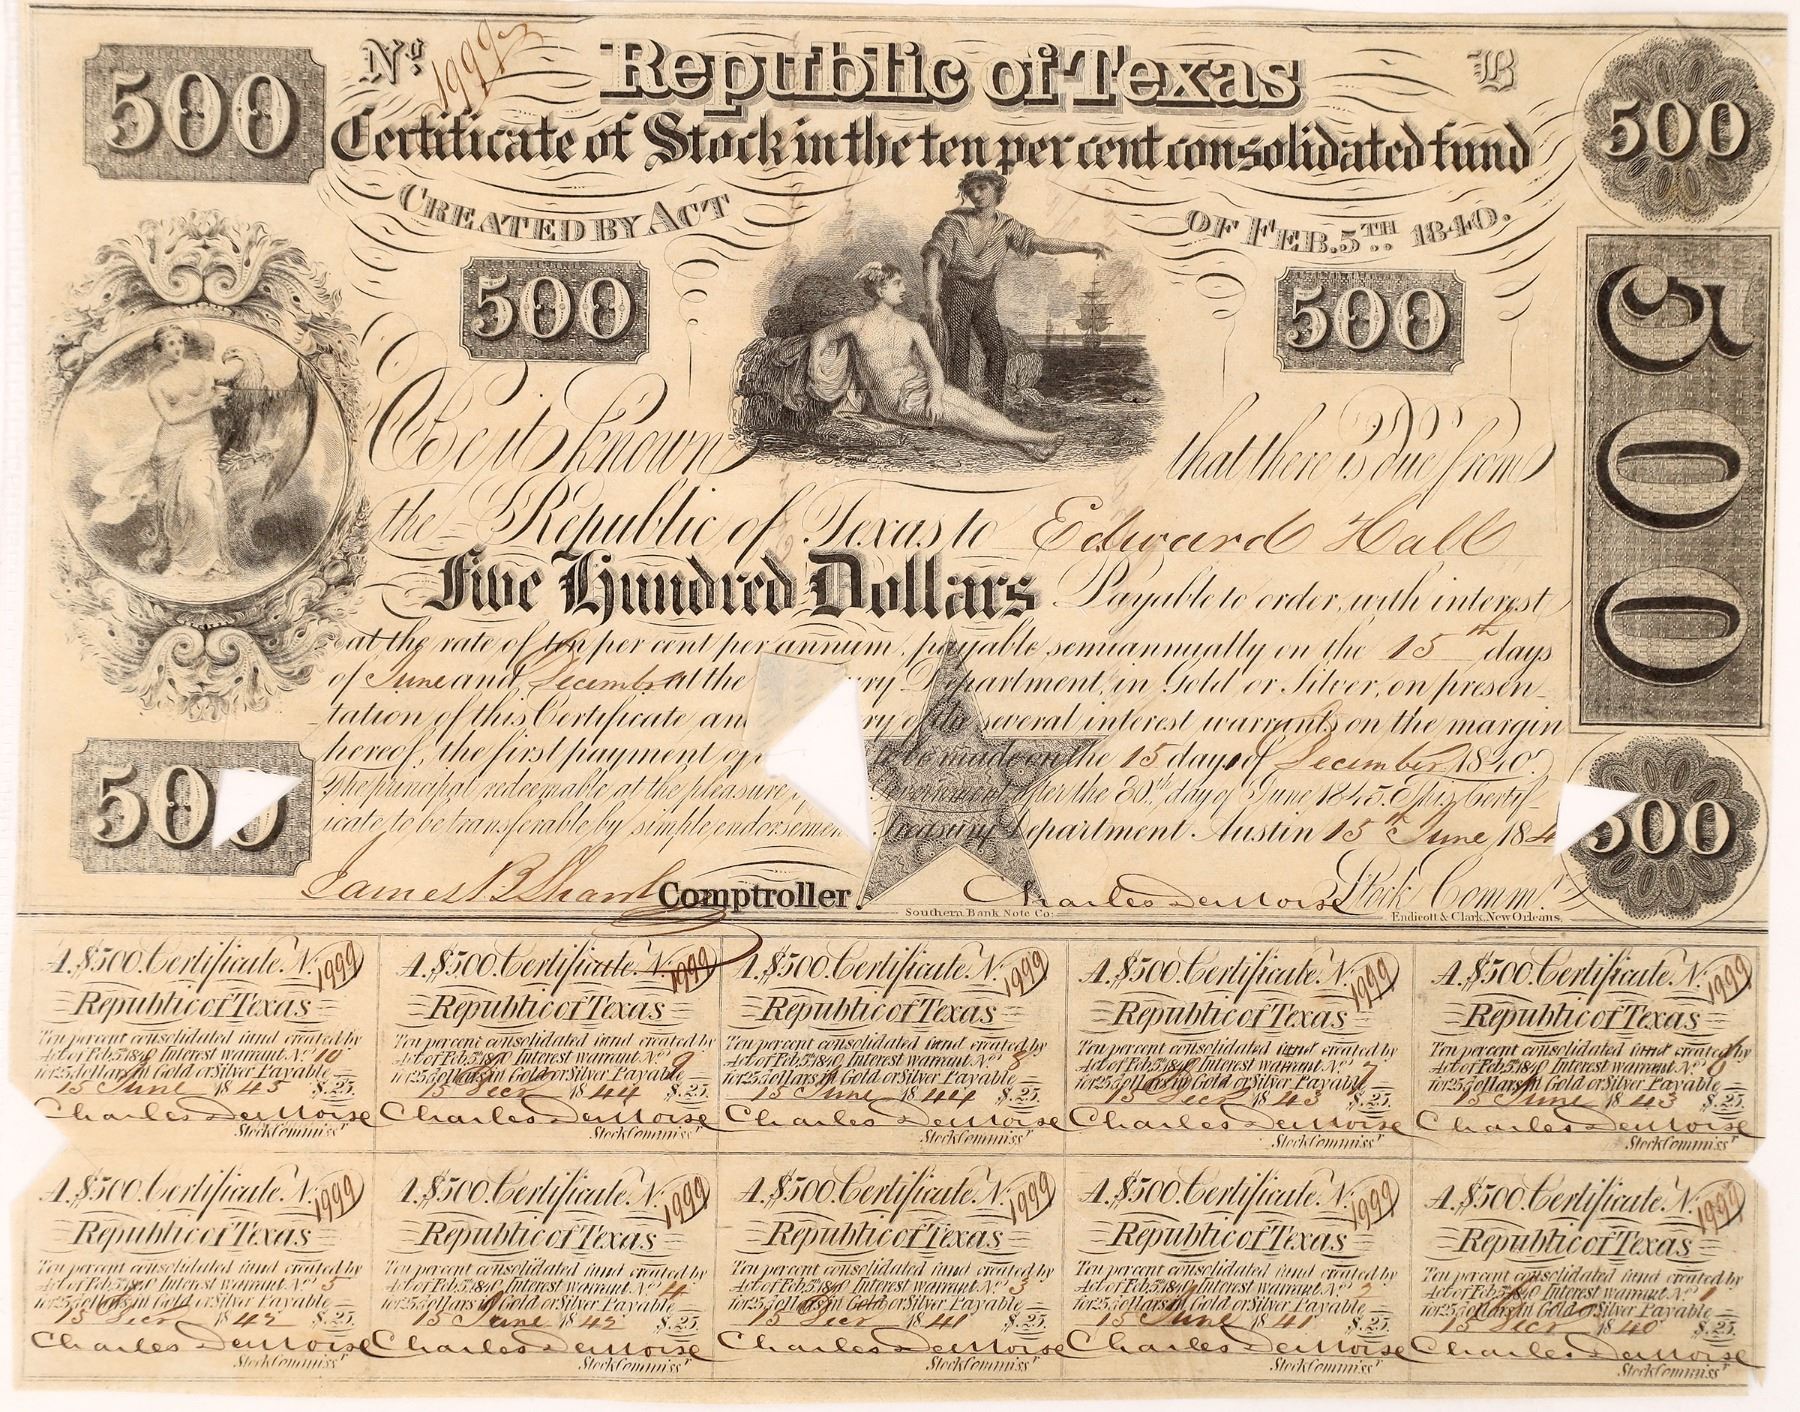 500
No. 1999
Republic of Texas
B
500
Certificate of Stock in the ten per cent consolidated fund
Created by Act
of Feb. 5th. 1840.
500
500
500
Be it known that there is due from
the Republic of Texas to Edward Hall
Five Hundred Dollars Payable to order, with interest
at the rate of ten per cent per annum, payable semiannually on the 15th days
of June and December at the ury Department, in Gold or Silver, on presen-
tation of this Certificate and ry of the several interest warrants on the margin
hereof, the first payment of to be made on the 15 day of December 1840.
The principal redeemable at the pleasure Government after the 30th day of June 1845. This Certif-
icate to be transferable by simple endorsement Treasury Department Austin 15th June 184
500
500
James B Shaw Comptroller. Charles DeMorse Stock Commr.
Southern Bank Note Co:
Endicott & Clark, New Orleans.
A. $500. Certificate. No. 1999
Republic of Texas
Ten per cent consolidated fund created by
Act of Feb. 5th 1840 Interest warrant No. 10
for 25 dollars in Gold or Silver Payable
15 June 1845 $.25.
Charles DeMorse
Stock Commissr
A. $500. Certificate. No. 1999
Republic of Texas
Ten per cent consolidated fund created by
Act of Feb. 5th 1840 Interest warrant No. 9
for 25 dollars in Gold or Silver Payable
15 Decr 1844 $.25.
Charles DeMorse
Stock Commissr
A. $500. Certificate. No. 1999
Republic of Texas
Ten per cent consolidated fund created by
Act of Feb. 5th 1840 Interest warrant No. 8
for 25 dollars in Gold or Silver Payable
15 June 1844 $.25.
Charles DeMorse
Stock Commissr
A. $500. Certificate. No. 1999
Republic of Texas
Ten per cent consolidated fund created by
Act of Feb. 5th 1840 Interest warrant No. 7
for 25 dollars in Gold or Silver Payable
15 Decr 1843 $.25.
Charles DeMorse
Stock Commissr
A. $500. Certificate. No. 1999
Republic of Texas
Ten per cent consolidated fund created by
Act of Feb. 5th 1840 Interest warrant No. 6
for 25 dollars in Gold or Silver Payable
15 June 1843 $.25.
Charles DeMorse
Stock Commissr
A. $500. Certificate. No. 1999
Republic of Texas
Ten per cent consolidated fund created by
Act of Feb. 5th 1840 Interest warrant No. 5
for 25 dollars in Gold or Silver Payable
15 Decr 1842 $.25.
Charles DeMorse
Stock Commissr
A. $500. Certificate. No. 1999
Republic of Texas
Ten per cent consolidated fund created by
Act of Feb. 5th 1840 Interest warrant No. 4
for 25 dollars in Gold or Silver Payable
15 June 1842 $.25.
Charles DeMorse
Stock Commissr
A. $500. Certificate. No. 1999
Republic of Texas
Ten per cent consolidated fund created by
Act of Feb. 5th 1840 Interest warrant No. 3
for 25 dollars in Gold or Silver Payable
15 Decr 1841 $.25.
Charles DeMorse
Stock Commissr
A. $500. Certificate. No. 1999
Republic of Texas
Ten per cent consolidated fund created by
Act of Feb. 5th 1840 Interest warrant No. 2
for 25 dollars in Gold or Silver Payable
15 June 1841 $.25.
Charles DeMorse
Stock Commissr
A. $500. Certificate. No. 1999
Republic of Texas
Ten per cent consolidated fund created by
Act of Feb. 5th 1840 Interest warrant No. 1
for 25 dollars in Gold or Silver Payable
15 Decr 1840 $.25.
Charles DeMorse
Stock Commissr